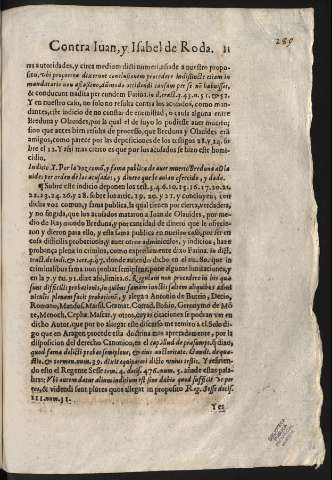 Contra Iuan, y Isabel de Roda. 31
280
ras autoridades, y circa medium dicti numeri, añade a nuestro proposito,
& conducunt nadita per eundem Farina. in d. tract. q. 43. n. 51. & 52.
Y en nuestro caso, no solo no resulta contra los acusados, como mandantes,
este indicio de no constar de enemistad, o causa alguna entre
Breduna y Olauides, por la qual el de suyo lo pudiesse auer muerto;
sino que antes bien resulta de processo, que Breduna y Olauides erã
amigos, como parece por las deposiciones de los testigos 21. y 24. sobre
el 12. Y assi mas cierto es que por los acusados se hizo este homicidio.
Indicio X. Por la voz comũ, y fama publica de auer muerto Breduna a Olauides
por orden de los acusados, y dinero que le auian ofrecido, y dado.
¶ Sobre este indicio deponen los test. 3. 4. 6. 10. 13. 16. 17. 20. 21.
22. 23. 24. 26. y 28. sobre los artic. 19. 20. y 21. y concluyen, con
dicha voz comun, y fama publica, la qual tienen por cierta, verdadera,
y no fingida, que los acusados mataron a Juan de Olauides, por medio
de Raymundo Breduna, y por cantidad de dinero que le ofrecieron
y dieron para ello, y esta fama publica en nuestro caso, por ser en
cosa dificil es probatiois, y auer otros adminiculos, y indicios, haze
probança plena in crimine, como expressamente dixo Farina. in dict.
tract. de indic. & tort. q. 47. donde auiendo dicho en el nu. 80. que in
criminalibus fama non probat semiplene, pone algunas limitaciones, y
en la 7. y nu. 92. dize assi, limita 6. Regulam non procedere in his quæ
sunt difficilis probationis, in quibus famam iunctis saltem aliquibus adminiculis
plenam facit probationẽ, y alega a Antonio de Butrio, Decio,
Romano, Mando. Mars. Gramat. Conrad. Bossio, Geronymo de Monte,
Menoch. Cephal. Mascar. y otros, cuyas citaciones se podran ver en
dicho Autor, que por no alargar este discurso me remito a el. Solo digo
que en Aragon procede esta doctrina mas apretadamente, por la
disposicion del derecho Canonico, en el cap. illud de præsumpt. y dixo,
Y refiriendo
esto el Regente Sesse tom. 4. decis. 476. num. 5. añade estas palabras:
& videndi sunt plures quos allegat in proposito Reg. Sesse decis.
111. num. 31.
Yes